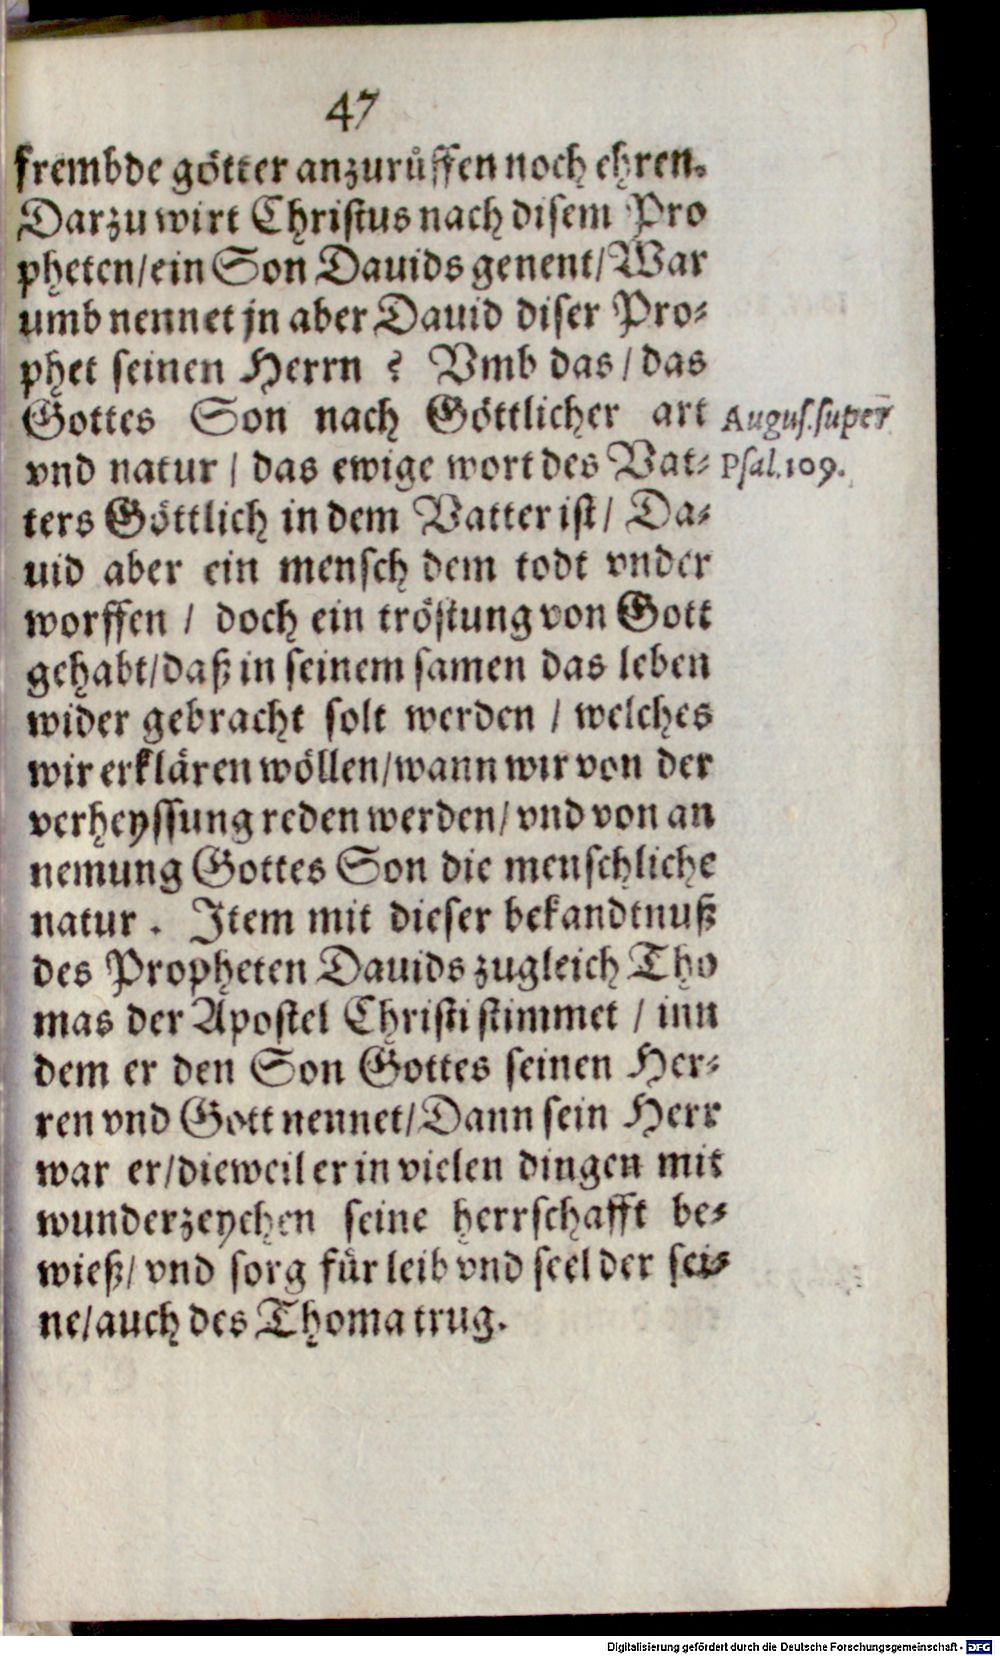 47
frembde götter anzurůffen noch ehren.
Darzu wirt Christus nach disem Pro
pheten/ein Son Dauids genent/War
umb nennet jn aber Dauid diser Pro-
phet seinen Herrn ? Vmb das / das
Gottes Son nach Göttlicher art
Augus.super
vnd natur / das ewige wort des Vat-
Psal.109.
ters Göttlich in dem Vatter ist/ Da-
uid aber ein mensch dem todt vnder
worffen / doch ein tröstung von Gott
gehabt/daß in seinem samen das leben
wider gebracht solt werden / welches
wir erklären wöllen/wann wir von der
verheyssung reden werden/ vnd von an
nemung Gottes Son die menschliche
natur . Item mit dieser bekandtnuß
des Propheten Dauids zugleich Tho
mas der Apostel Christi stimmet / inn
dem er den Son Gottes seinen Her-
ren vnd Gott nennet/Dann sein Herr
war er/dieweil er in vielen dingen mit
wunderzeychen seine herrschafft be-
wieß/ vnd sorg für leib vnd seel der sei-
ne/auch des Thoma trug.
Digitalisierung gefördert durch die Deutsche Forschungsgemeinschaft - DFG